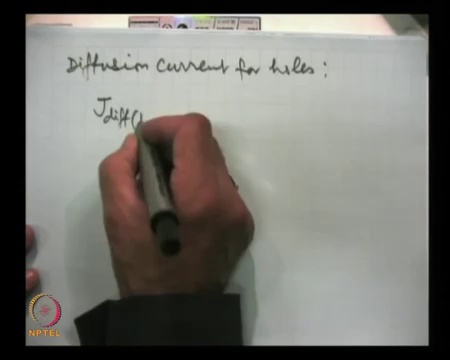 Diffusion Current for holes :
Jdiff(
NPTEL